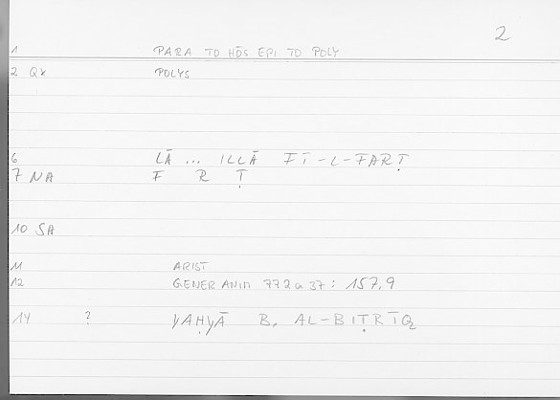 2
1 PARA TO HŌS EPI TO POLY
2 QV POLYS
6 LĀ ... ILLĀ FĪ-L-FARṬ
7 NA F R Ṭ
10 SA
11 ARIST
12 GENER ANIM 772a37: 157,9
14 ? YAḤYĀ B. AL-BIṬRĪQ